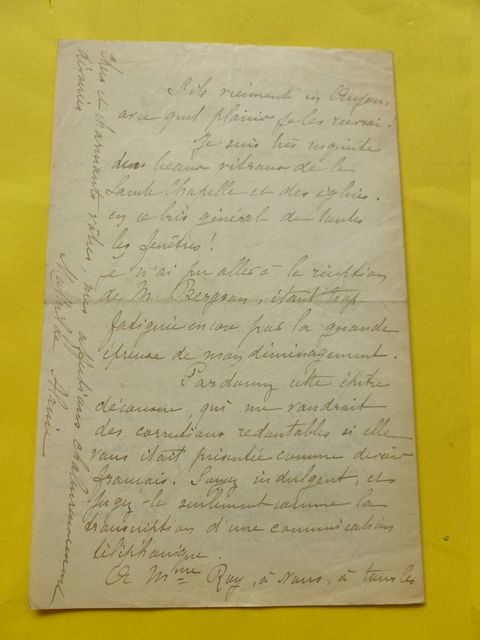 S'ils viennent en Anjou,
avec quel plaisir je les recevrai!
Je suis très inquiète
des beaux vitraux de la
Sainte Chapelle et des églises.
en ce bris général de toutes
les fenêtres!
Je n'ai pu aller à la réception
de M. Bergson, étant trop
fatiguée encore par la grande
épreuve de mon déménagement.
Pardonnez cette épître
décousue, qui me vaudrait
des corrections redoutables si elle
vous était présentée comme devoir
français! Soyez indulgent, et
jugez-le seulement comme la
transcription d'une communication
téléphonique.
A Mme Roy, à vous, à tous les
chers et charmants vôtres, mes affections chaleureusement
dévouées
Mathilde Alanic